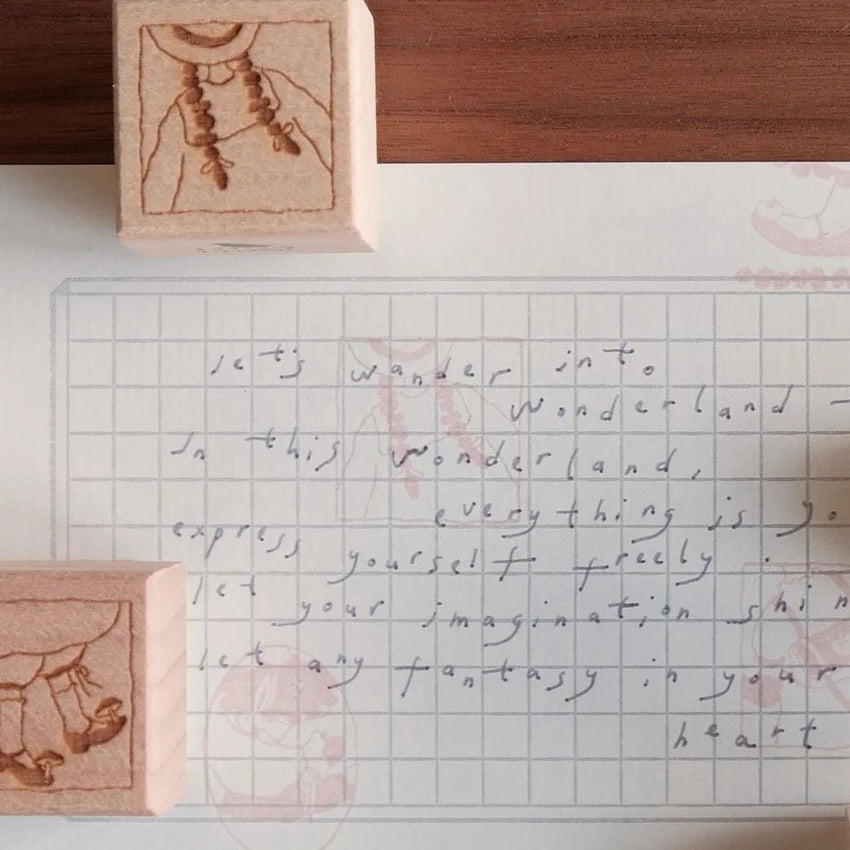 let's wander into
wonderland -
In this wonderland,
everything is yo
express yourself freely.
let your imagination shin
let any fantasy in your
heart